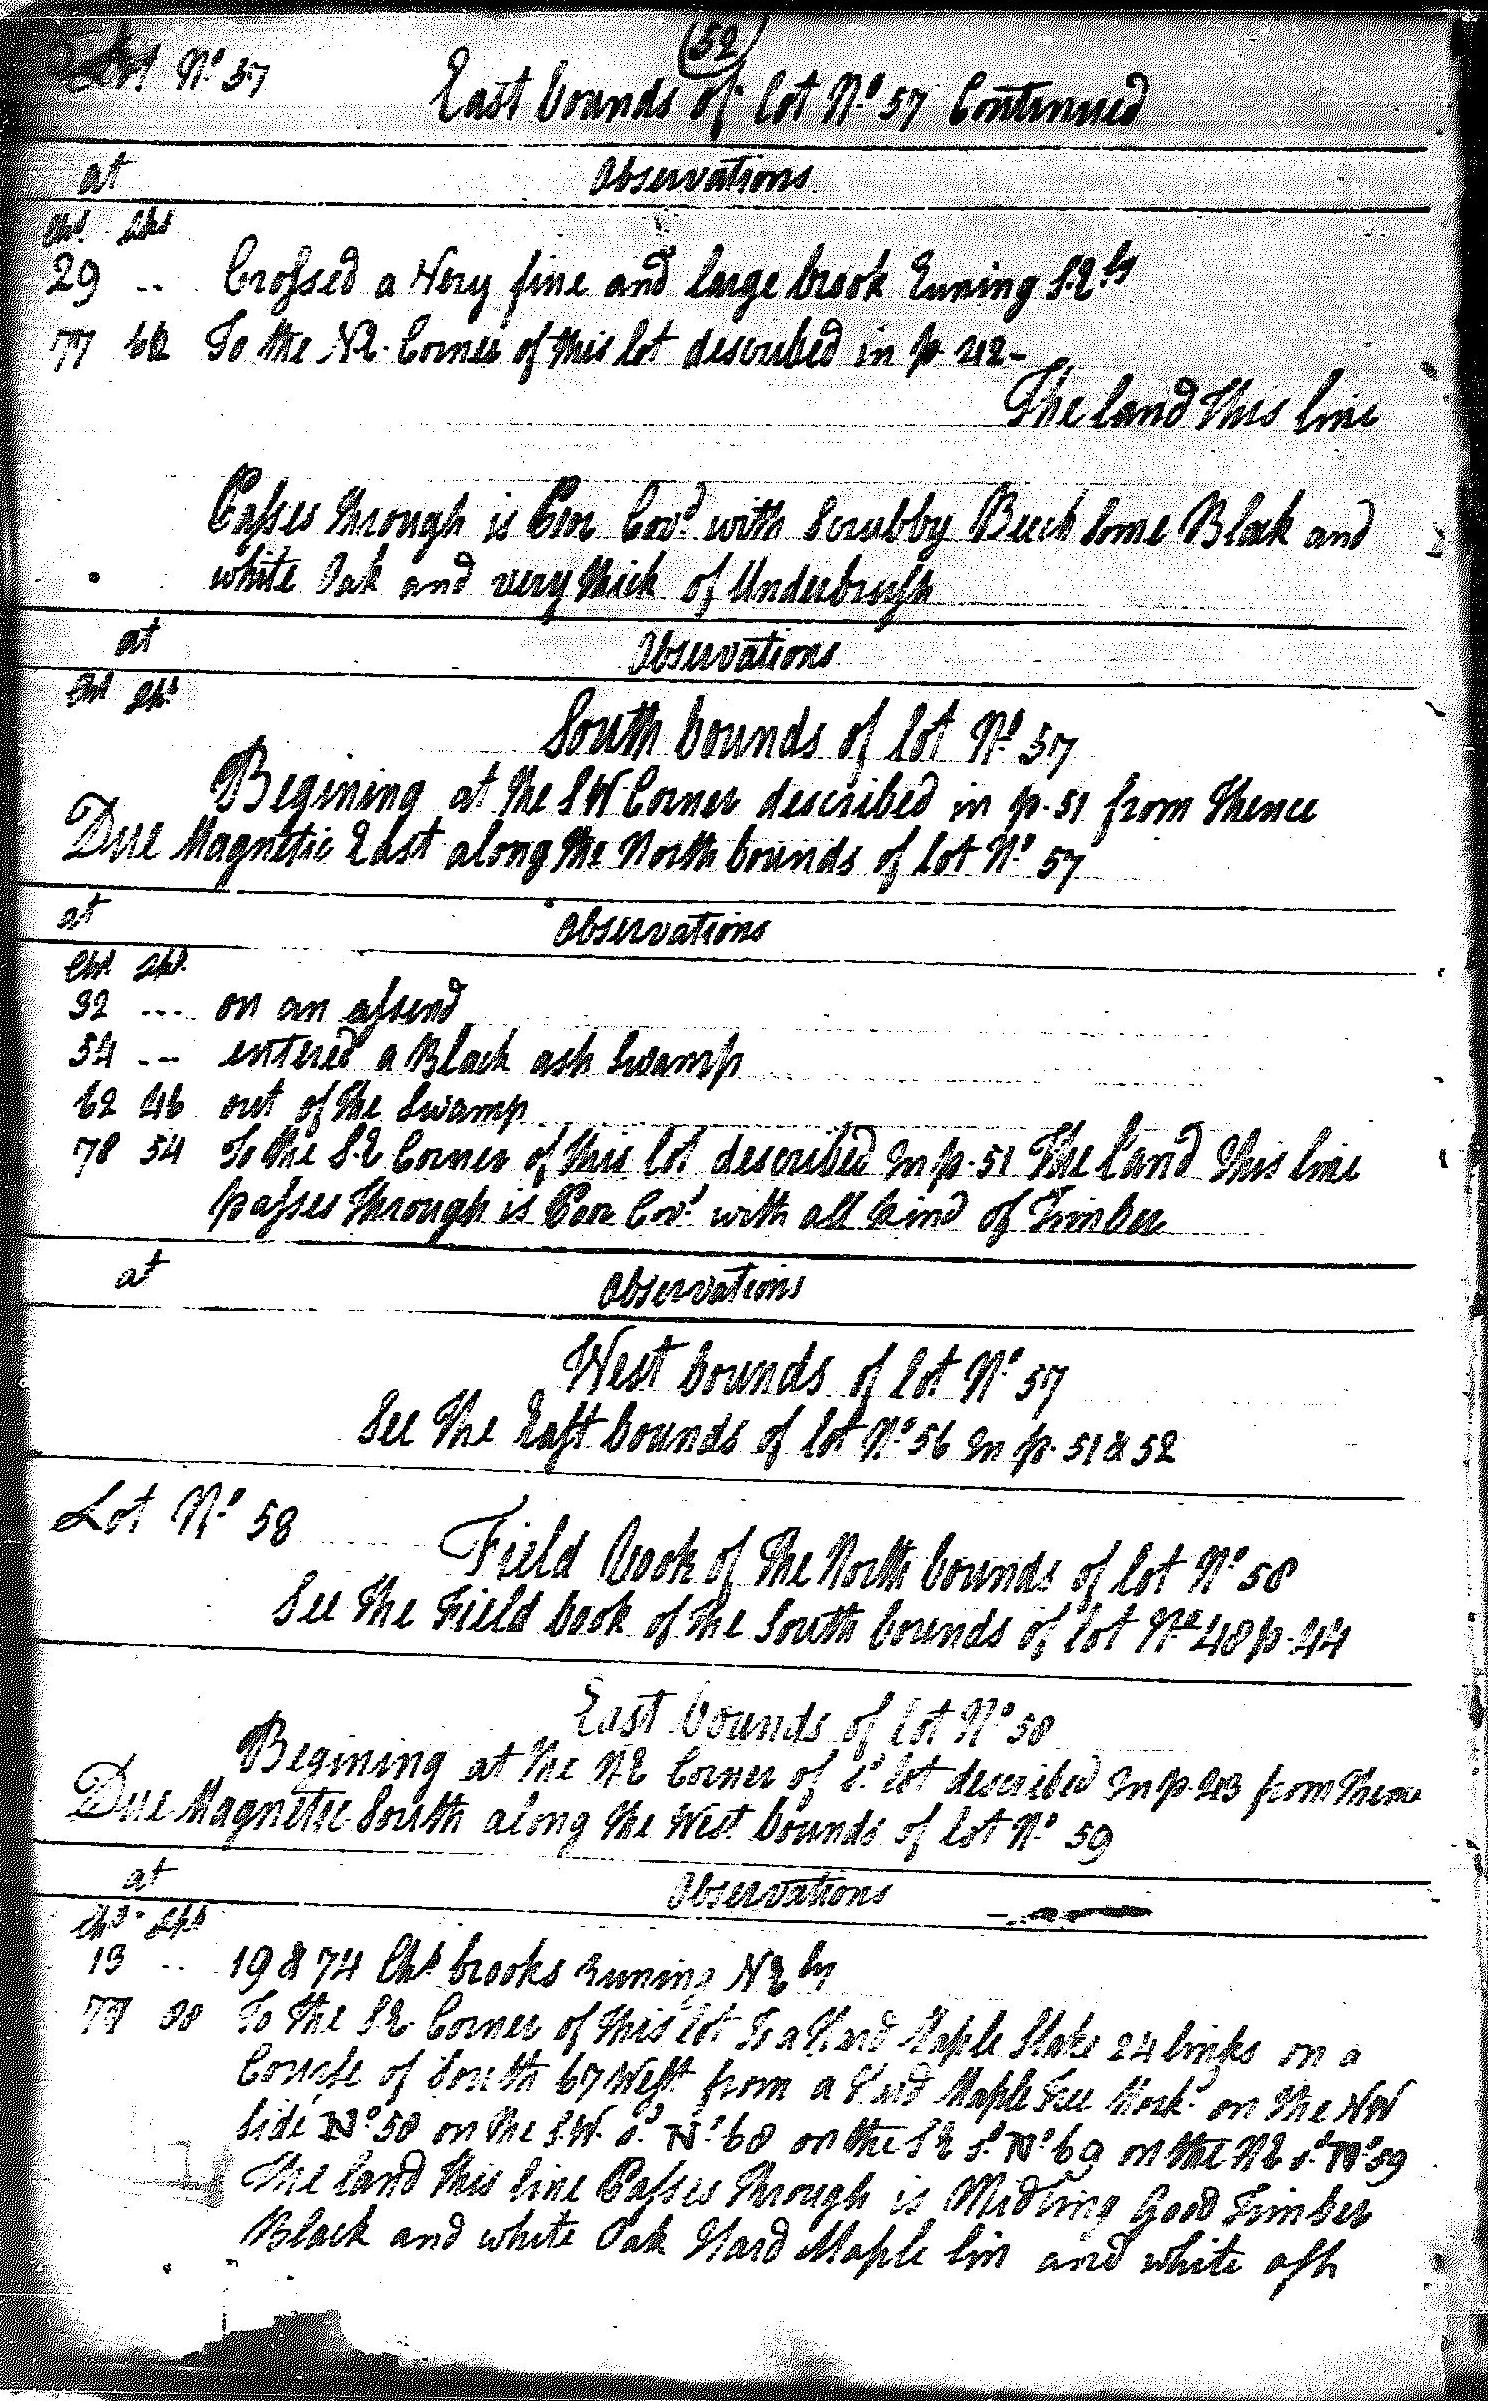 (52)
Lot No. 57 East bounds of lot No. 57 Continued
at Observations
Chs. Lks
29 .. Crossed a Very fine and large brook Runing S.E.ly
77 62 To the N.E. Corner of this lot described in p. 42 -
The land this line
Passes through is Poor Cov.d with Scrubby Beech Some Black and
white Oak and very thick of Underbrush
at Observations
Chs Lks.
South bounds of lot No. 57
Begining at the S.W. Corner described in p. 51 from thence
Due Magnetic East along the North bounds of lot No. 57
at Observations
Chs. Lks.
32 ... on an assend
54 ... entered a Black ash Swamp
62 46 out of the Swamp
78 54 To the S.E Corner of this lot described In p. 51 The land this line
passes through is Poor Cov.d with all kind of Timber
at Observations
West bounds of lot No. 57
See the East bounds of lot No. 56 In p. 51 & 52
Lot No. 58 Field book of the North bounds of lot No. 58
See the Field book of the South bounds of lot No. 48 p. 44
East bounds of lot No. 58
Begining at the N.E Corner of s.d lot described In p. 43 from thence
Due Magnetic South along the West bounds of lot No. 59
at Observations
Chs. Lks
13 .. 19 & 74 Chs brooks runing N E ly
77 To the S.E Corner of this lot Is a Hard Maple Stake 24 links on a
Course of South 67 West from a Hard Maple Tree Mark.d on the NW
Side No. 58 on the S.W. s.d No. 68 on the S E s.d No. 69 on the N E s.d No. 59
The land this line Passes through is Midling Good Timber
Black and white Oak Hard Maple lin and white ash